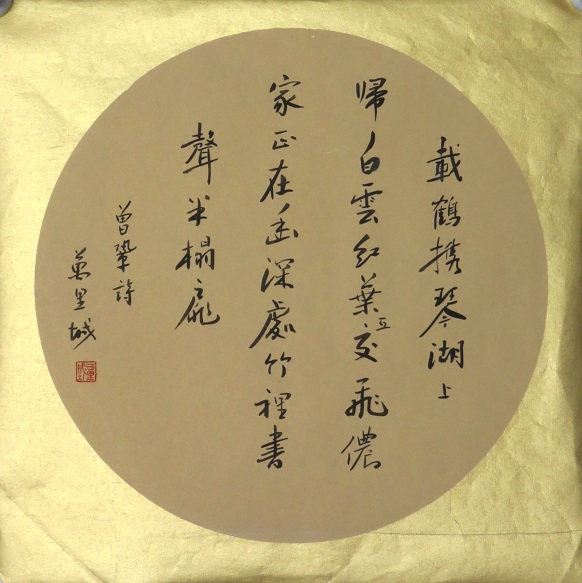 載鶴携琴湖上
帰白雲紅葉互交飛儂
家正在幽深處竹裡書
聲半榻扉
曾鞏詩
萬里城